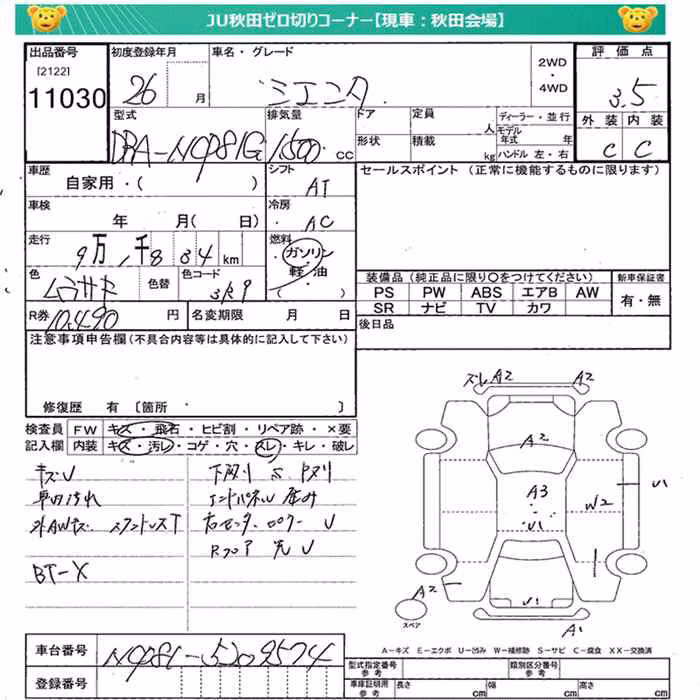 JU秋田ゼロ切りコーナー【現車：秋田会場】
出品番号 [2122] 11030
初度登録年月 26 月
車名・グレード シエンタ
2WD ・ 4WD
評価点 3.5
型式 DBA-NCP81G
排気量 1500 cc
ドア 形状
定員 人 積載 kg
ディーラー・並行
モデル年式 年
ハンドル 左・右
外装 C 内装 C
車歴 自家用・( )
シフト AT
セールスポイント (正常に機能するものに限ります)
車検 年 月( 日)
冷房 AC
走行 9万 千8 84 km
燃料 ガソリン・軽油 ( )
色 ムラサキ 色替 色コード 3R9
装備品 (純正品に限り○をつけてください) 新車保証書
PS PW ABS エアB AW 有・無
SR ナビ TV カワ
R券 10,490 円 名変期限 月 日
後日品
注意事項申告欄(不具合内容等は具体的に記入して下さい)
修復歴 有 〔箇所・ 〕
検査員 FW キズ・飛石・ヒビ割・リペア跡・×要
記入欄 内装 キズ・汚レ・コゲ・穴・スレ・キレ・破レ
キズU
車内汚れ
外AWキズ
BT-X
ズレA2 A2
A2
A3
U1
W2
U1
A2
U1
A1
スペア
A-キズ E-エクボ U-凹み W-補修跡 S-サビ C-腐食 XX-交換済
車台番号 NCP81-5209574
登録番号
型式指定番号 参考 類別区分番号 参考
車庫証明用 参考 長さ cm 幅 cm 高さ cm